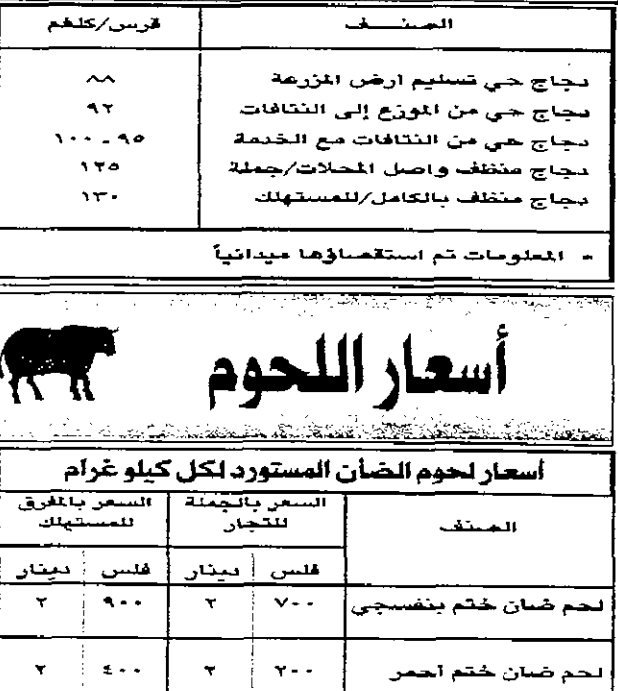 الصنف قرس/كلغم
دجاج حي تسليم ارض المزرعة ٨٨
دجاج حي من الموزع إلى النتافات ٩٢
دجاج حي من النتافات مع الخدمة ٩٥ - ١٠٠
دجاج منظف واصل المحلات/جملة ١٢٥
دجاج منظف بالكامل/للمستهلك ١٣٠
- المعلومات تم استقصاؤها ميدانياً
أسعار اللحوم
أسعار لحوم الضأن المستورد لكل كيلو غرام
الصنف السعر بالجملة للتجار السعر بالمفرق للمستهلك
فلس دينار فلس دينار
لحم ضان ختم بنفسجي ٧٠٠ ٢ ٩٠٠ ٢
لحم ضان ختم أحمر ٢٠٠ ٢ ٤٠٠ ٢